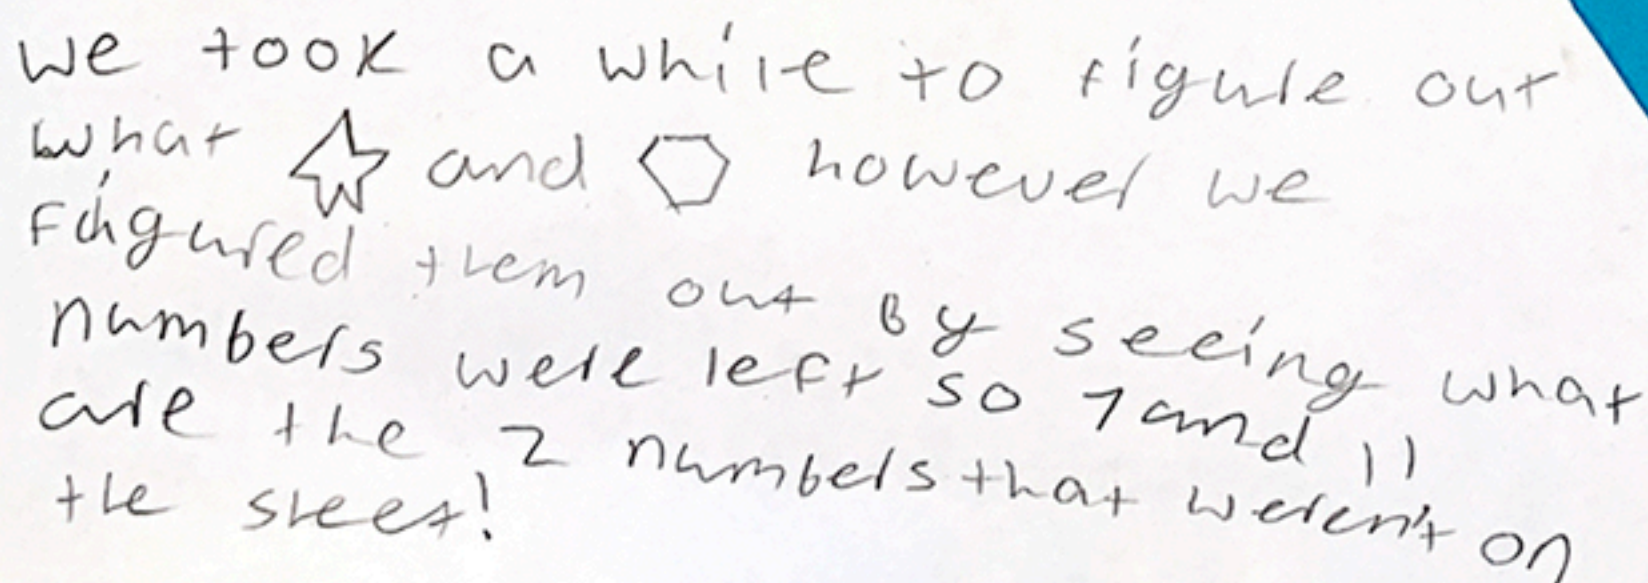 we took a while to figure out
what and however we
figured them out by seeing what
numbers were left so 7 and 11
are the 2 numbers that weren't on
the sheet!